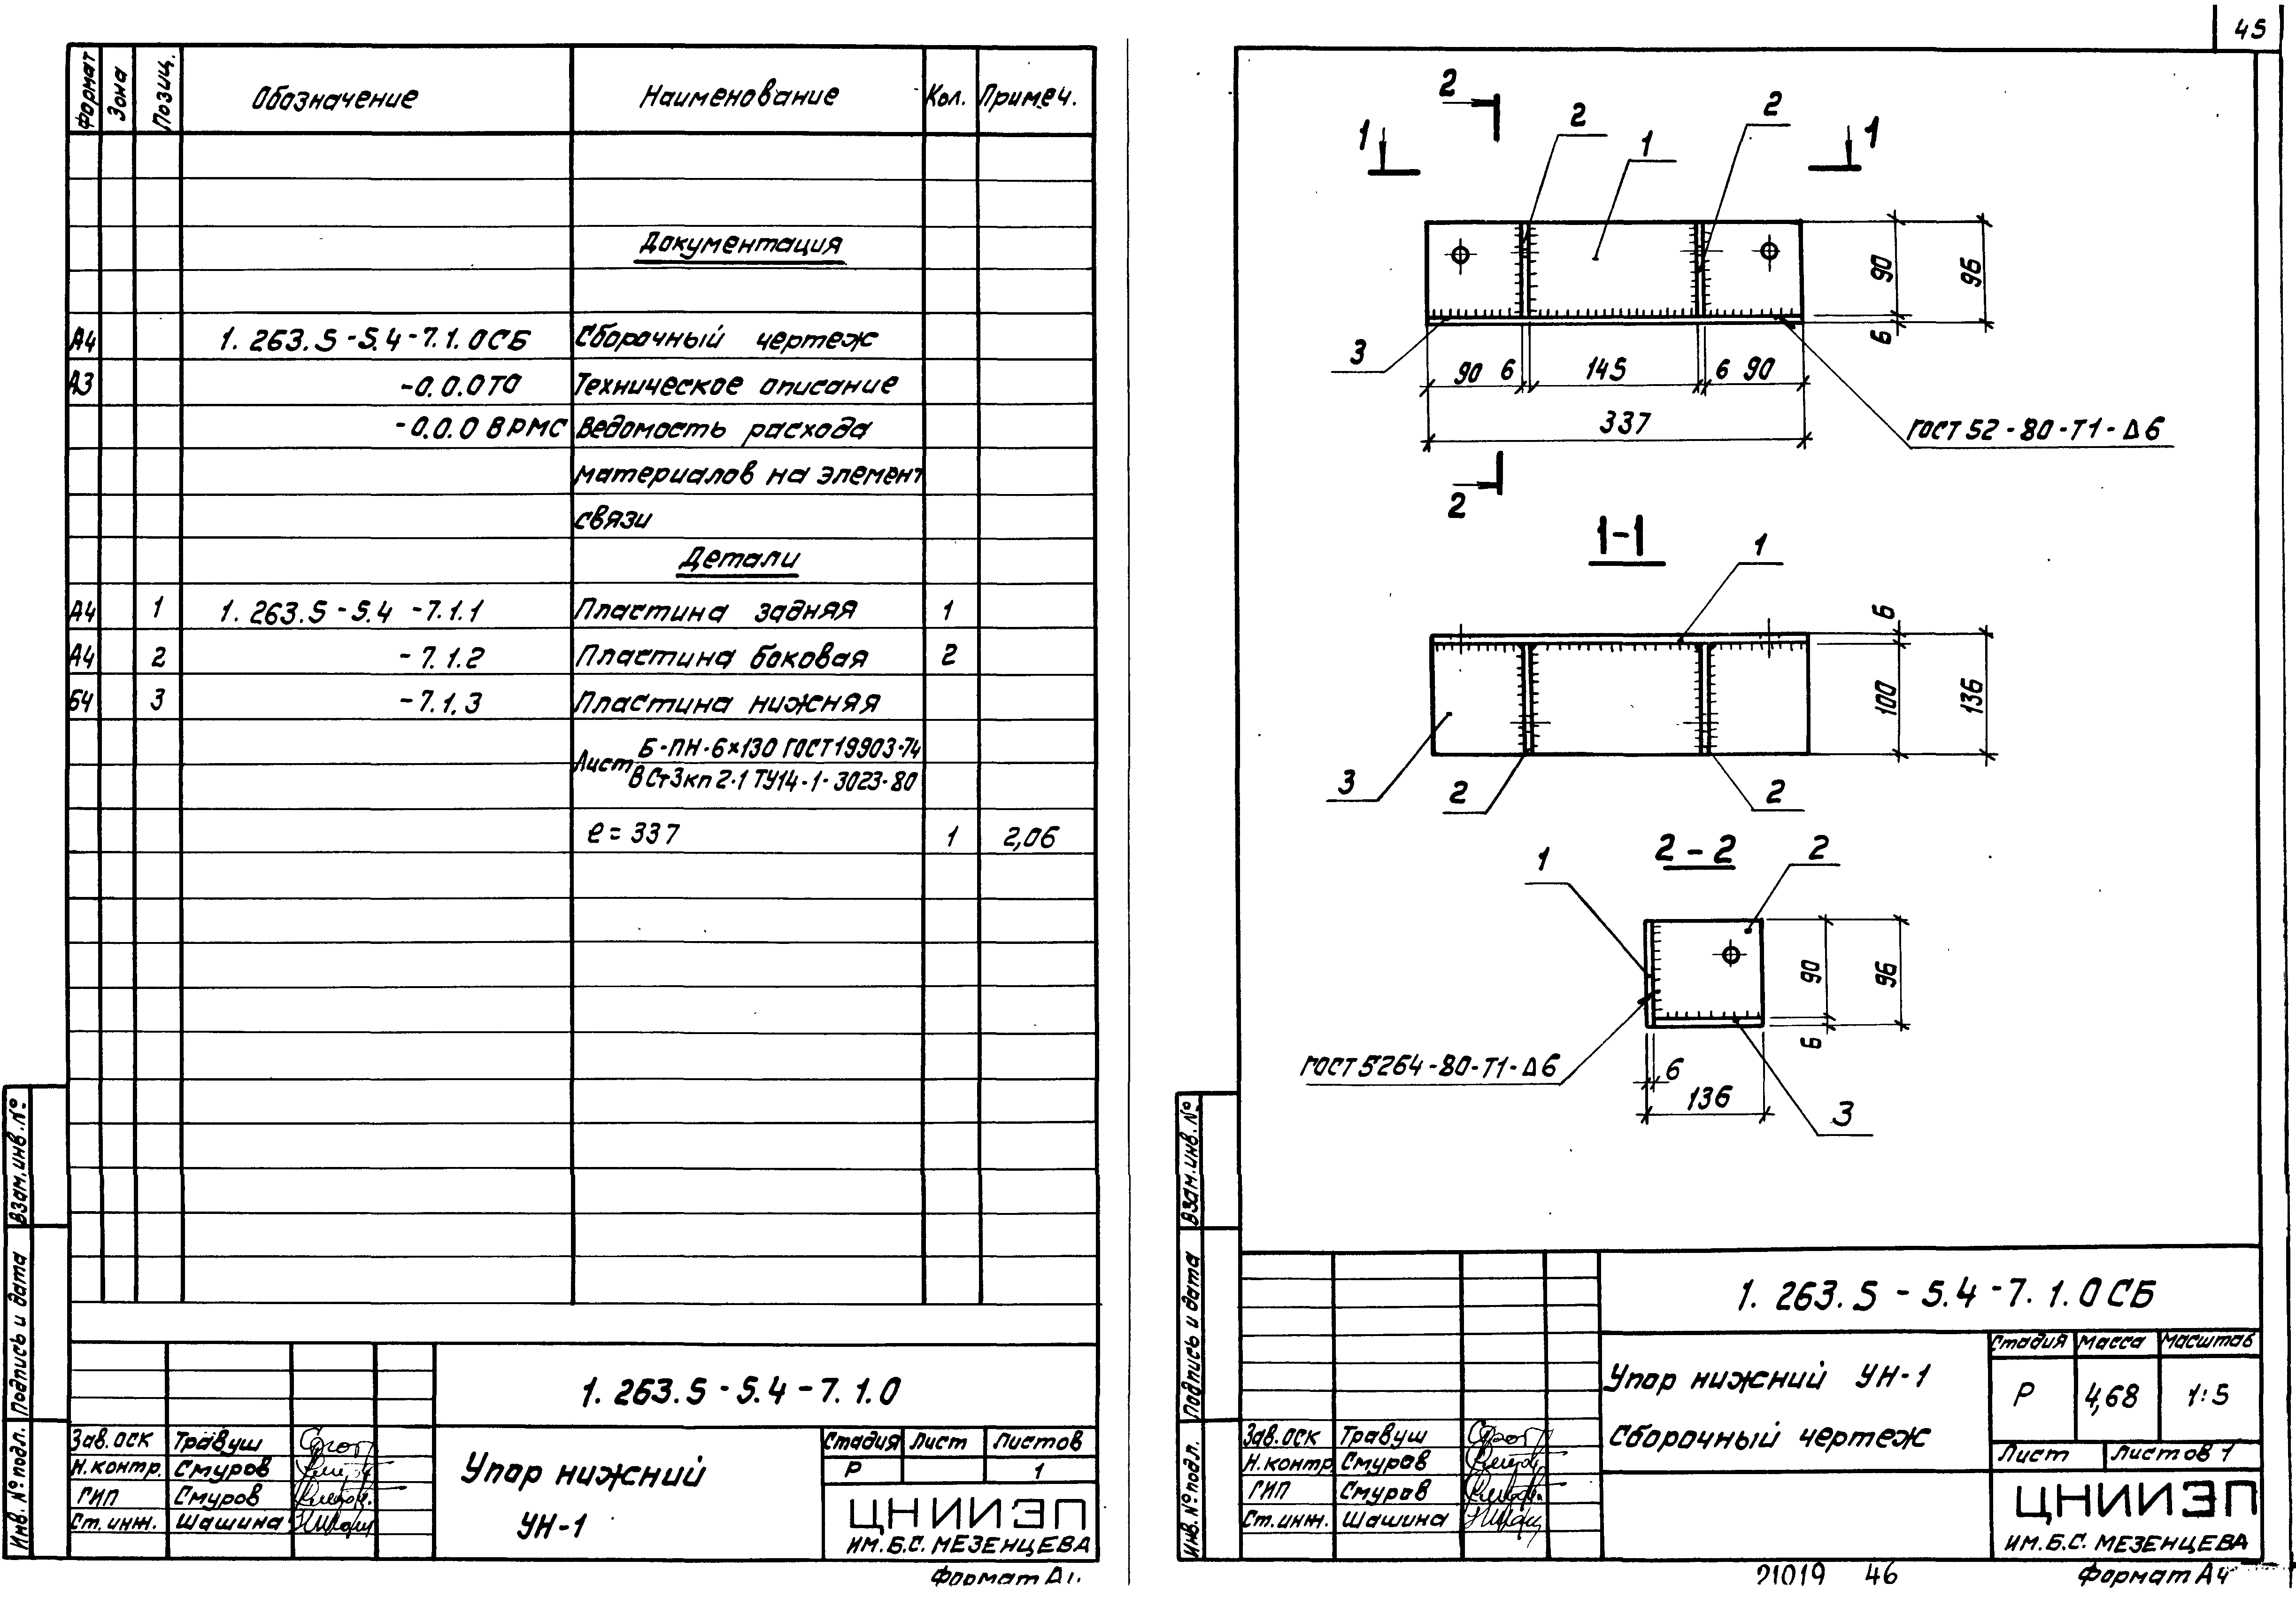 45
Формат Зона Позиц. Обозначение Наименование Кол. Примеч.
Документация
А4 1.263.5-5.4-7.1.0СБ Сборочный чертеж
А3 -0.0.0ТО Техническое описание
-0.0.0 ВРМС Ведомость расхода
материалов на элемент
связи
Детали
А4 1 1.263.5-5.4 -7.1.1 Пластина задняя 1
А4 2 -7.1.2 Пластина боковая 2
Б4 3 -7.1.3 Пластина нижняя
Лист Б-ПН-6×130 ГОСТ 19903-74
ВСт3кп2-1 ТУ14-1-3023-80
ℓ = 337 1 2,06
Взам. инв. №
Подпись и дата
Инв. № подл.
1.263.5-5.4-7.1.0
Зав. ОСК Травуш
Н.контр. Смуров
ГИП Смуров
Ст. инж. Шашина
Упор нижний
УН-1
Стадия Лист Листов
Р 1
ЦНИИЭП
ИМ. Б.С. МЕЗЕНЦЕВА
2
1 2 1 2 1
90 96
6
3
90 6 145 6 90
337
ГОСТ 52-80-Т1-Δ6
2
1-1
1
6
100 136
3 2 2
2-2
1 2
90 96
6
ГОСТ 5264-80-Т1-Δ6
6
136
3
Взам. инв. №
Подпись и дата
Инв. № подл.
1.263.5-5.4-7.1.0СБ
Упор нижний УН-1
Сборочный чертеж
Стадия Масса Масштаб
Р 4,68 1:5
Лист Листов 1
Зав. ОСК Травуш
Н.контр Смуров
ГИП Смуров
Ст. инж. Шашина
ЦНИИЭП
ИМ. Б.С. МЕЗЕНЦЕВА
Формат
21019 46
Формат А4